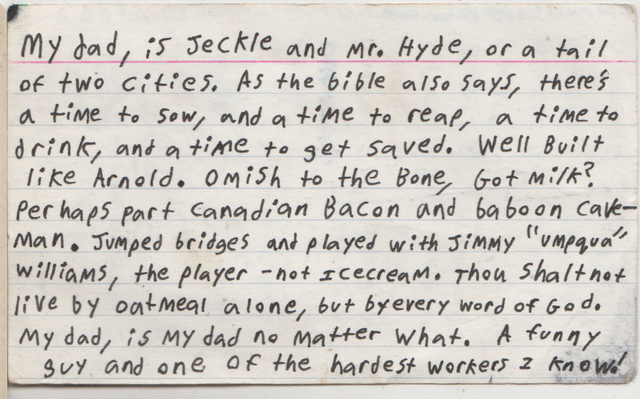 My dad, is Jeckle and Mr. Hyde, or a tail
of two cities. As the bible also says, there's
a time to sow, and a time to reap, a time to
drink, and a time to get saved. Well Built
like Arnold. Omish to the Bone, Got milk?
Perhaps part Canadian Bacon and baboon cave-
man. Jumped bridges and played with Jimmy "Umpqua"
Williams, the player - not Icecream. Thou shalt not
live by oatmeal alone, but by every word of God.
My dad, is my dad no matter what. A funny
guy and one of the hardest workers I know!